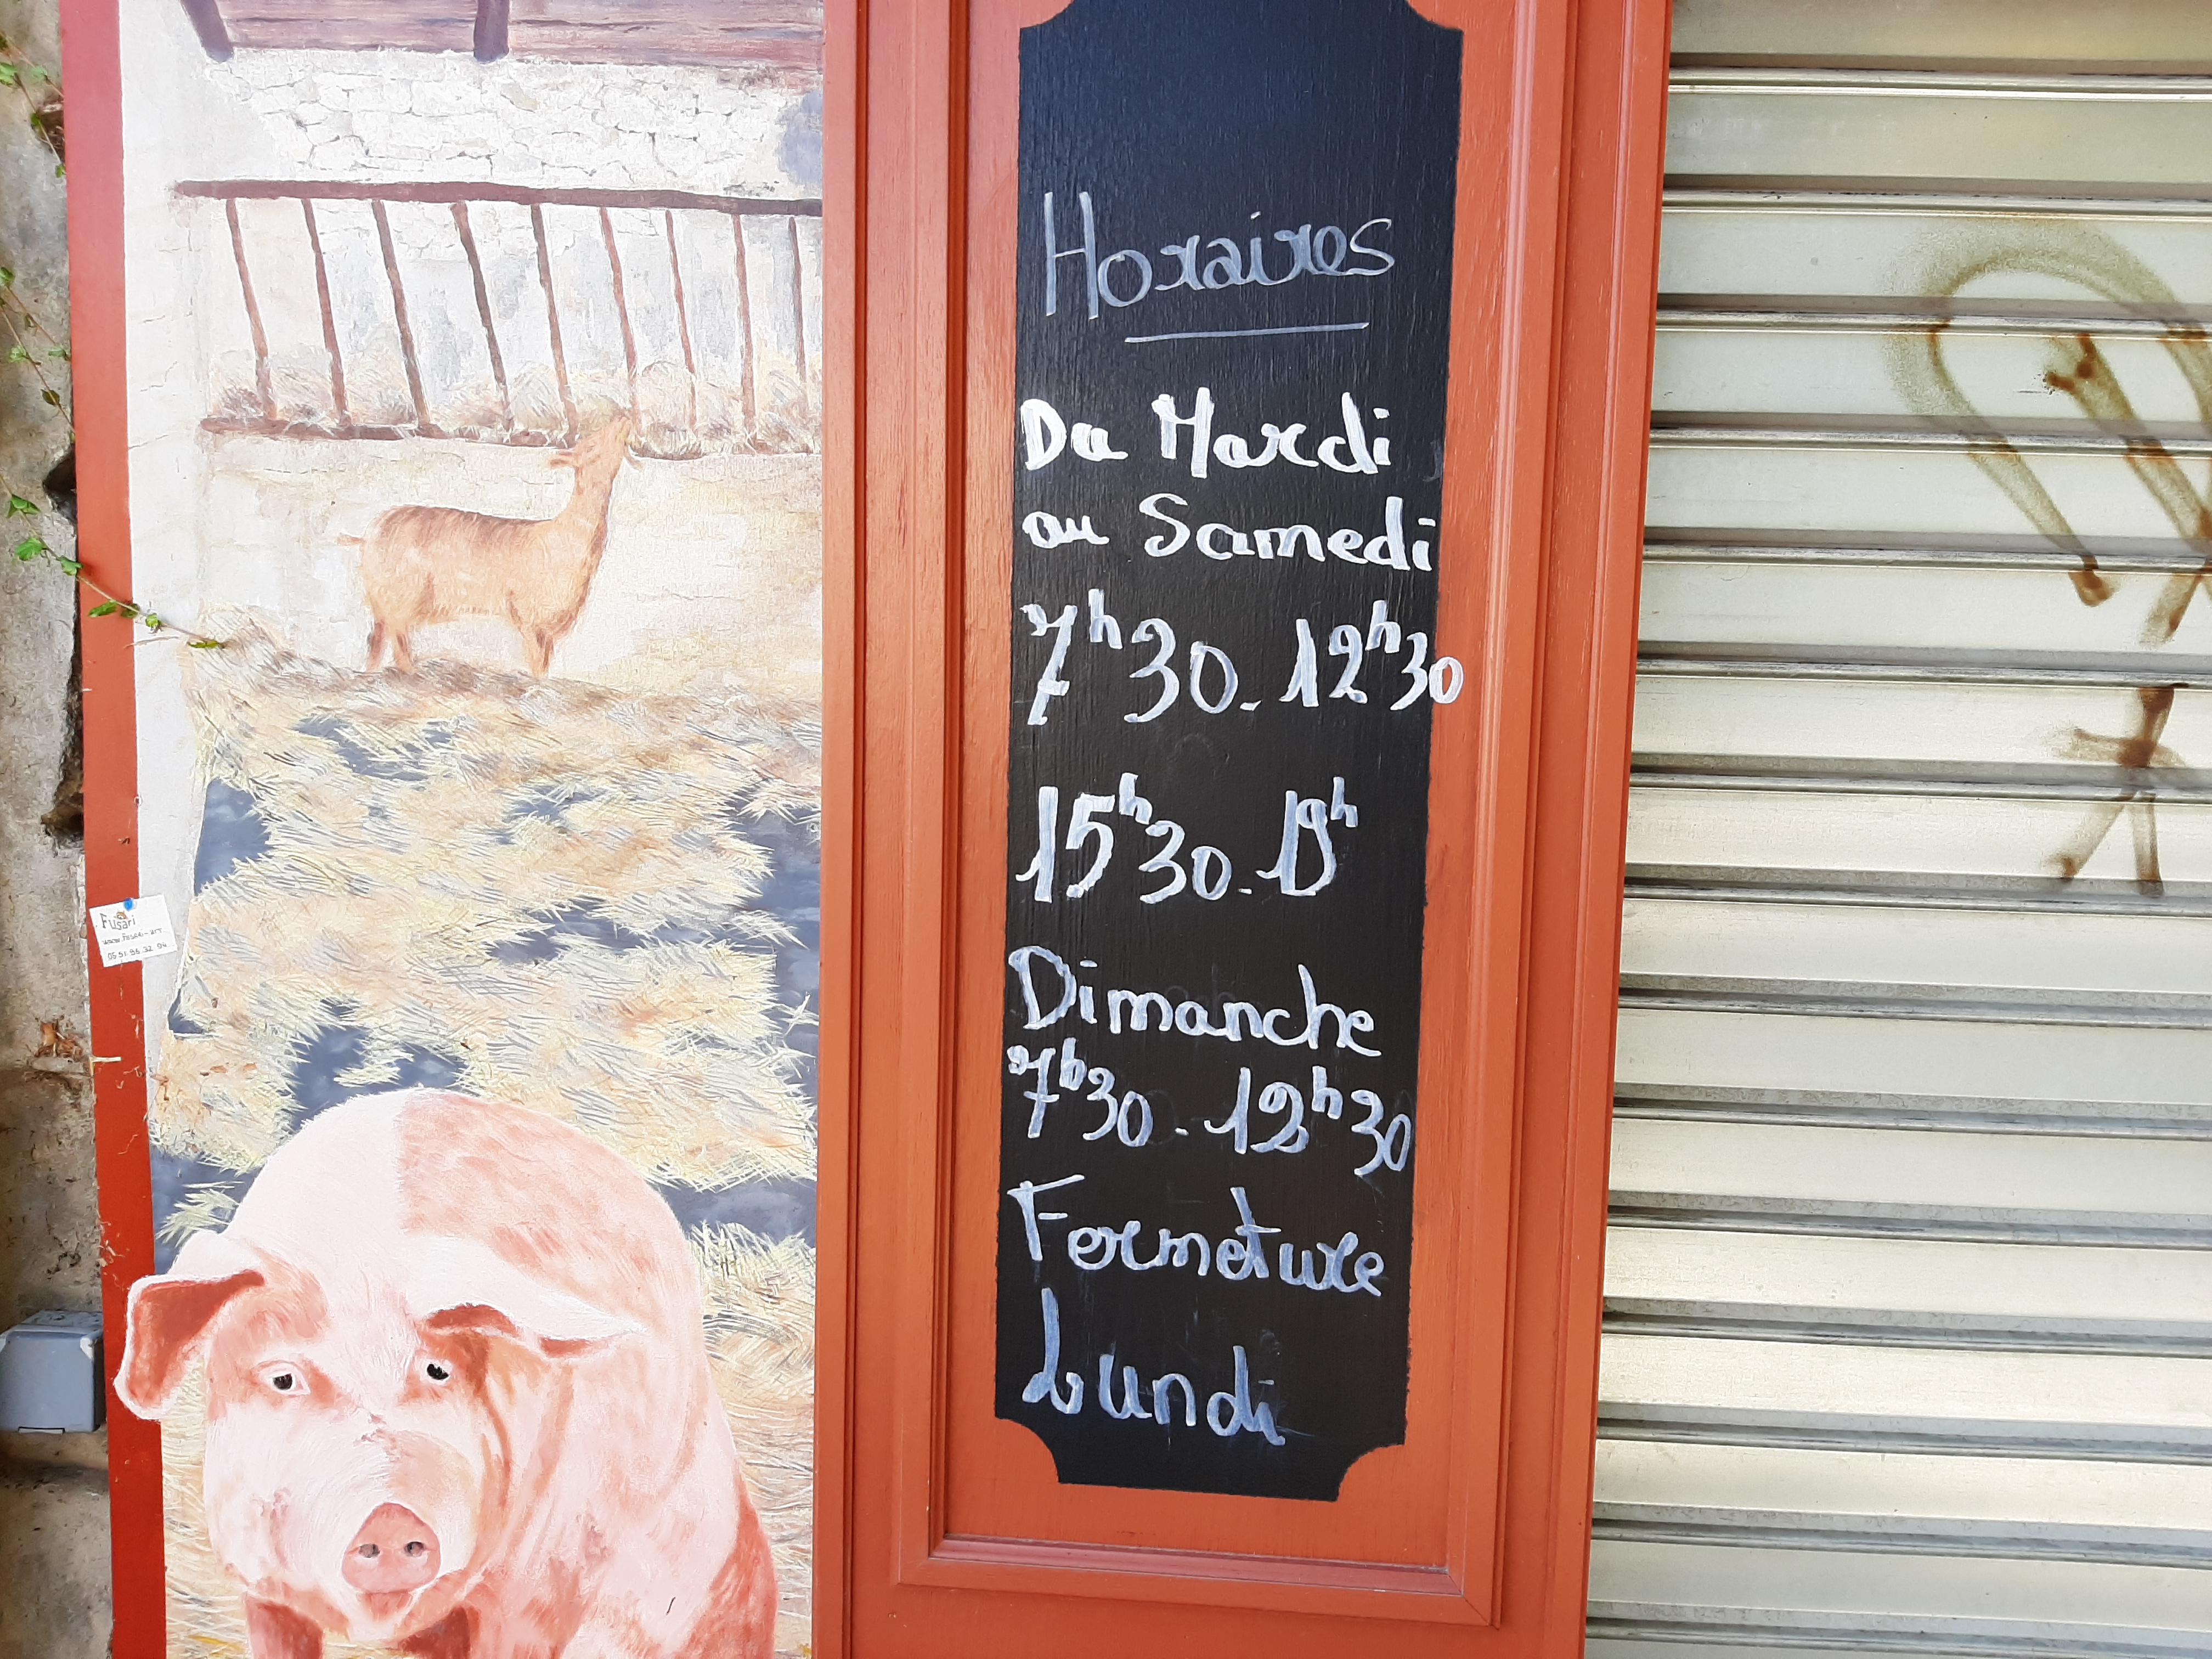 Horaires
Du Mardi
au Samedi
7h30-12h30
15h30-19h
Dimanche
7h30-12h30
Fermeture
Lundi
Fusari